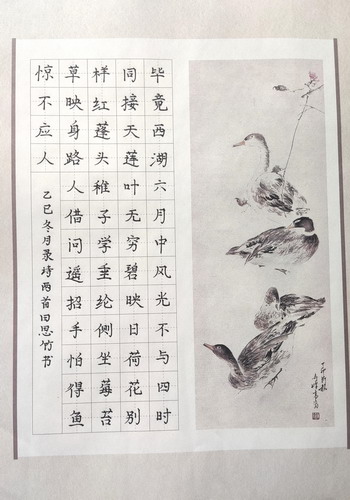 毕竟西湖六月中风光不与四时
同接天莲叶无穷碧映日荷花别
样红蓬头稚子学垂纶侧坐莓苔
草映身路人借问遥招手怕得鱼
惊不应人
乙巳冬月录诗两首田思竹书